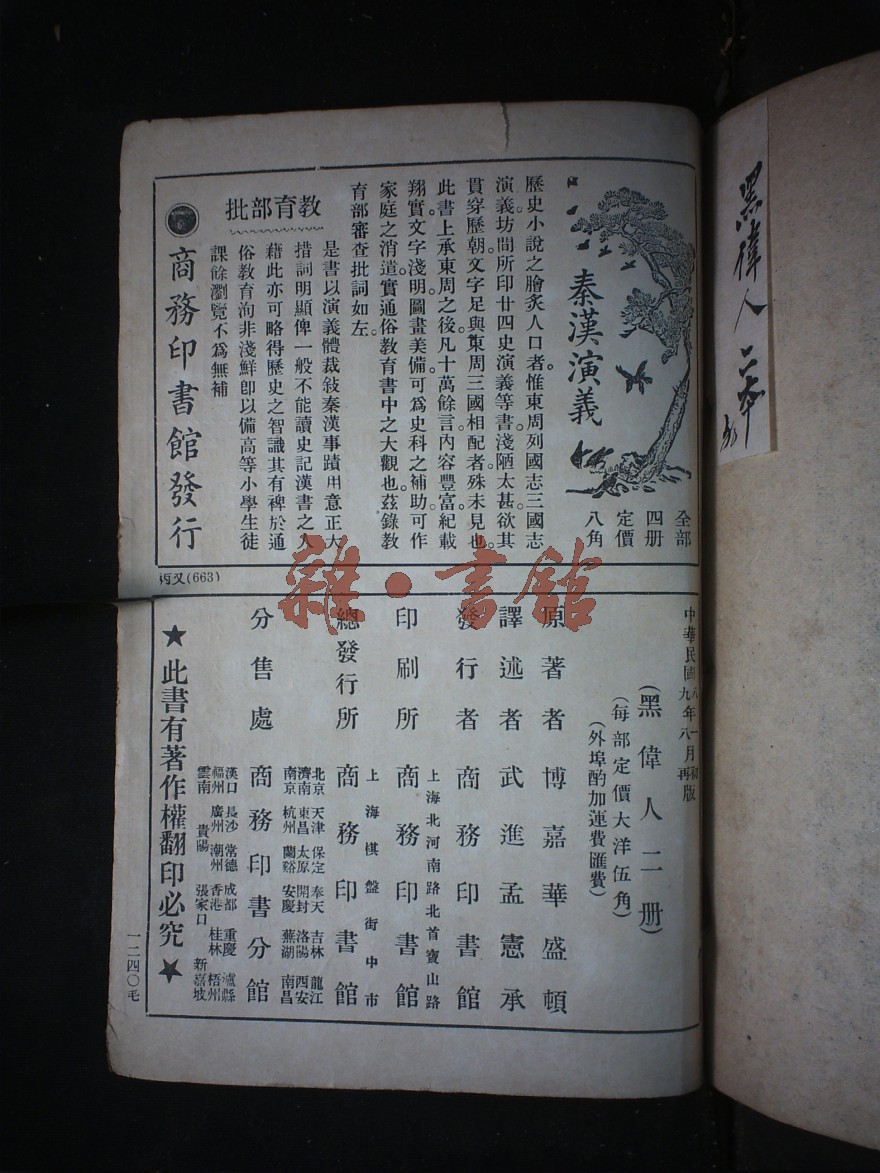 黑偉人 二本
秦漢演義
全部
四册
定價
八角
歷史小說之膾炙人口者。惟東周列國志三國志
演義。坊間所印廿四史演義等書。淺陋太甚。欲其
貫穿歷朝。文字足與東周三國相配者。殊未見也。
此書上承東周之後。凡十萬餘言。內容豐富。紀載
翔實。文字淺明。圖畫美備。可爲史科之補助。可作
家庭之消遣。實通俗教育書中之大觀也。茲錄教
育部審查批詞如左。
教育部批
是書以演義體裁敍秦漢事蹟用意正大
措詞明顯俾一般不能讀史記漢書之人
藉此亦可略得歷史之智識其有裨於通
俗教育洵非淺鮮卽以備高等小學生徒
課餘瀏覽不爲無補
商務印書館發行
(663)
雜·書館
中華民國
九年八月再版
(黑偉人二册)
(每部定價大洋伍角)
(外埠酌加運費匯費)
原著者 博嘉華盛頓
譯述者 武進孟憲承
發行者 商務印書館
上海北河南路北首寶山路
印刷所 商務印書館
上海棋盤街中市
總發行所 商務印書館
北京 天津 保定 奉天 吉林 龍江
濟南 東昌 太原 開封 洛陽 西安
南京 杭州 蘭谿 安慶 蕪湖 南昌
分售處 商務印書分館
漢口 長沙 常德 成都 重慶 瀘縣
福州 廣州 潮州 香港 桂林 梧州
雲南 貴陽 張家口 新嘉坡
★此書有著作權翻印必究★
一二四〇毛